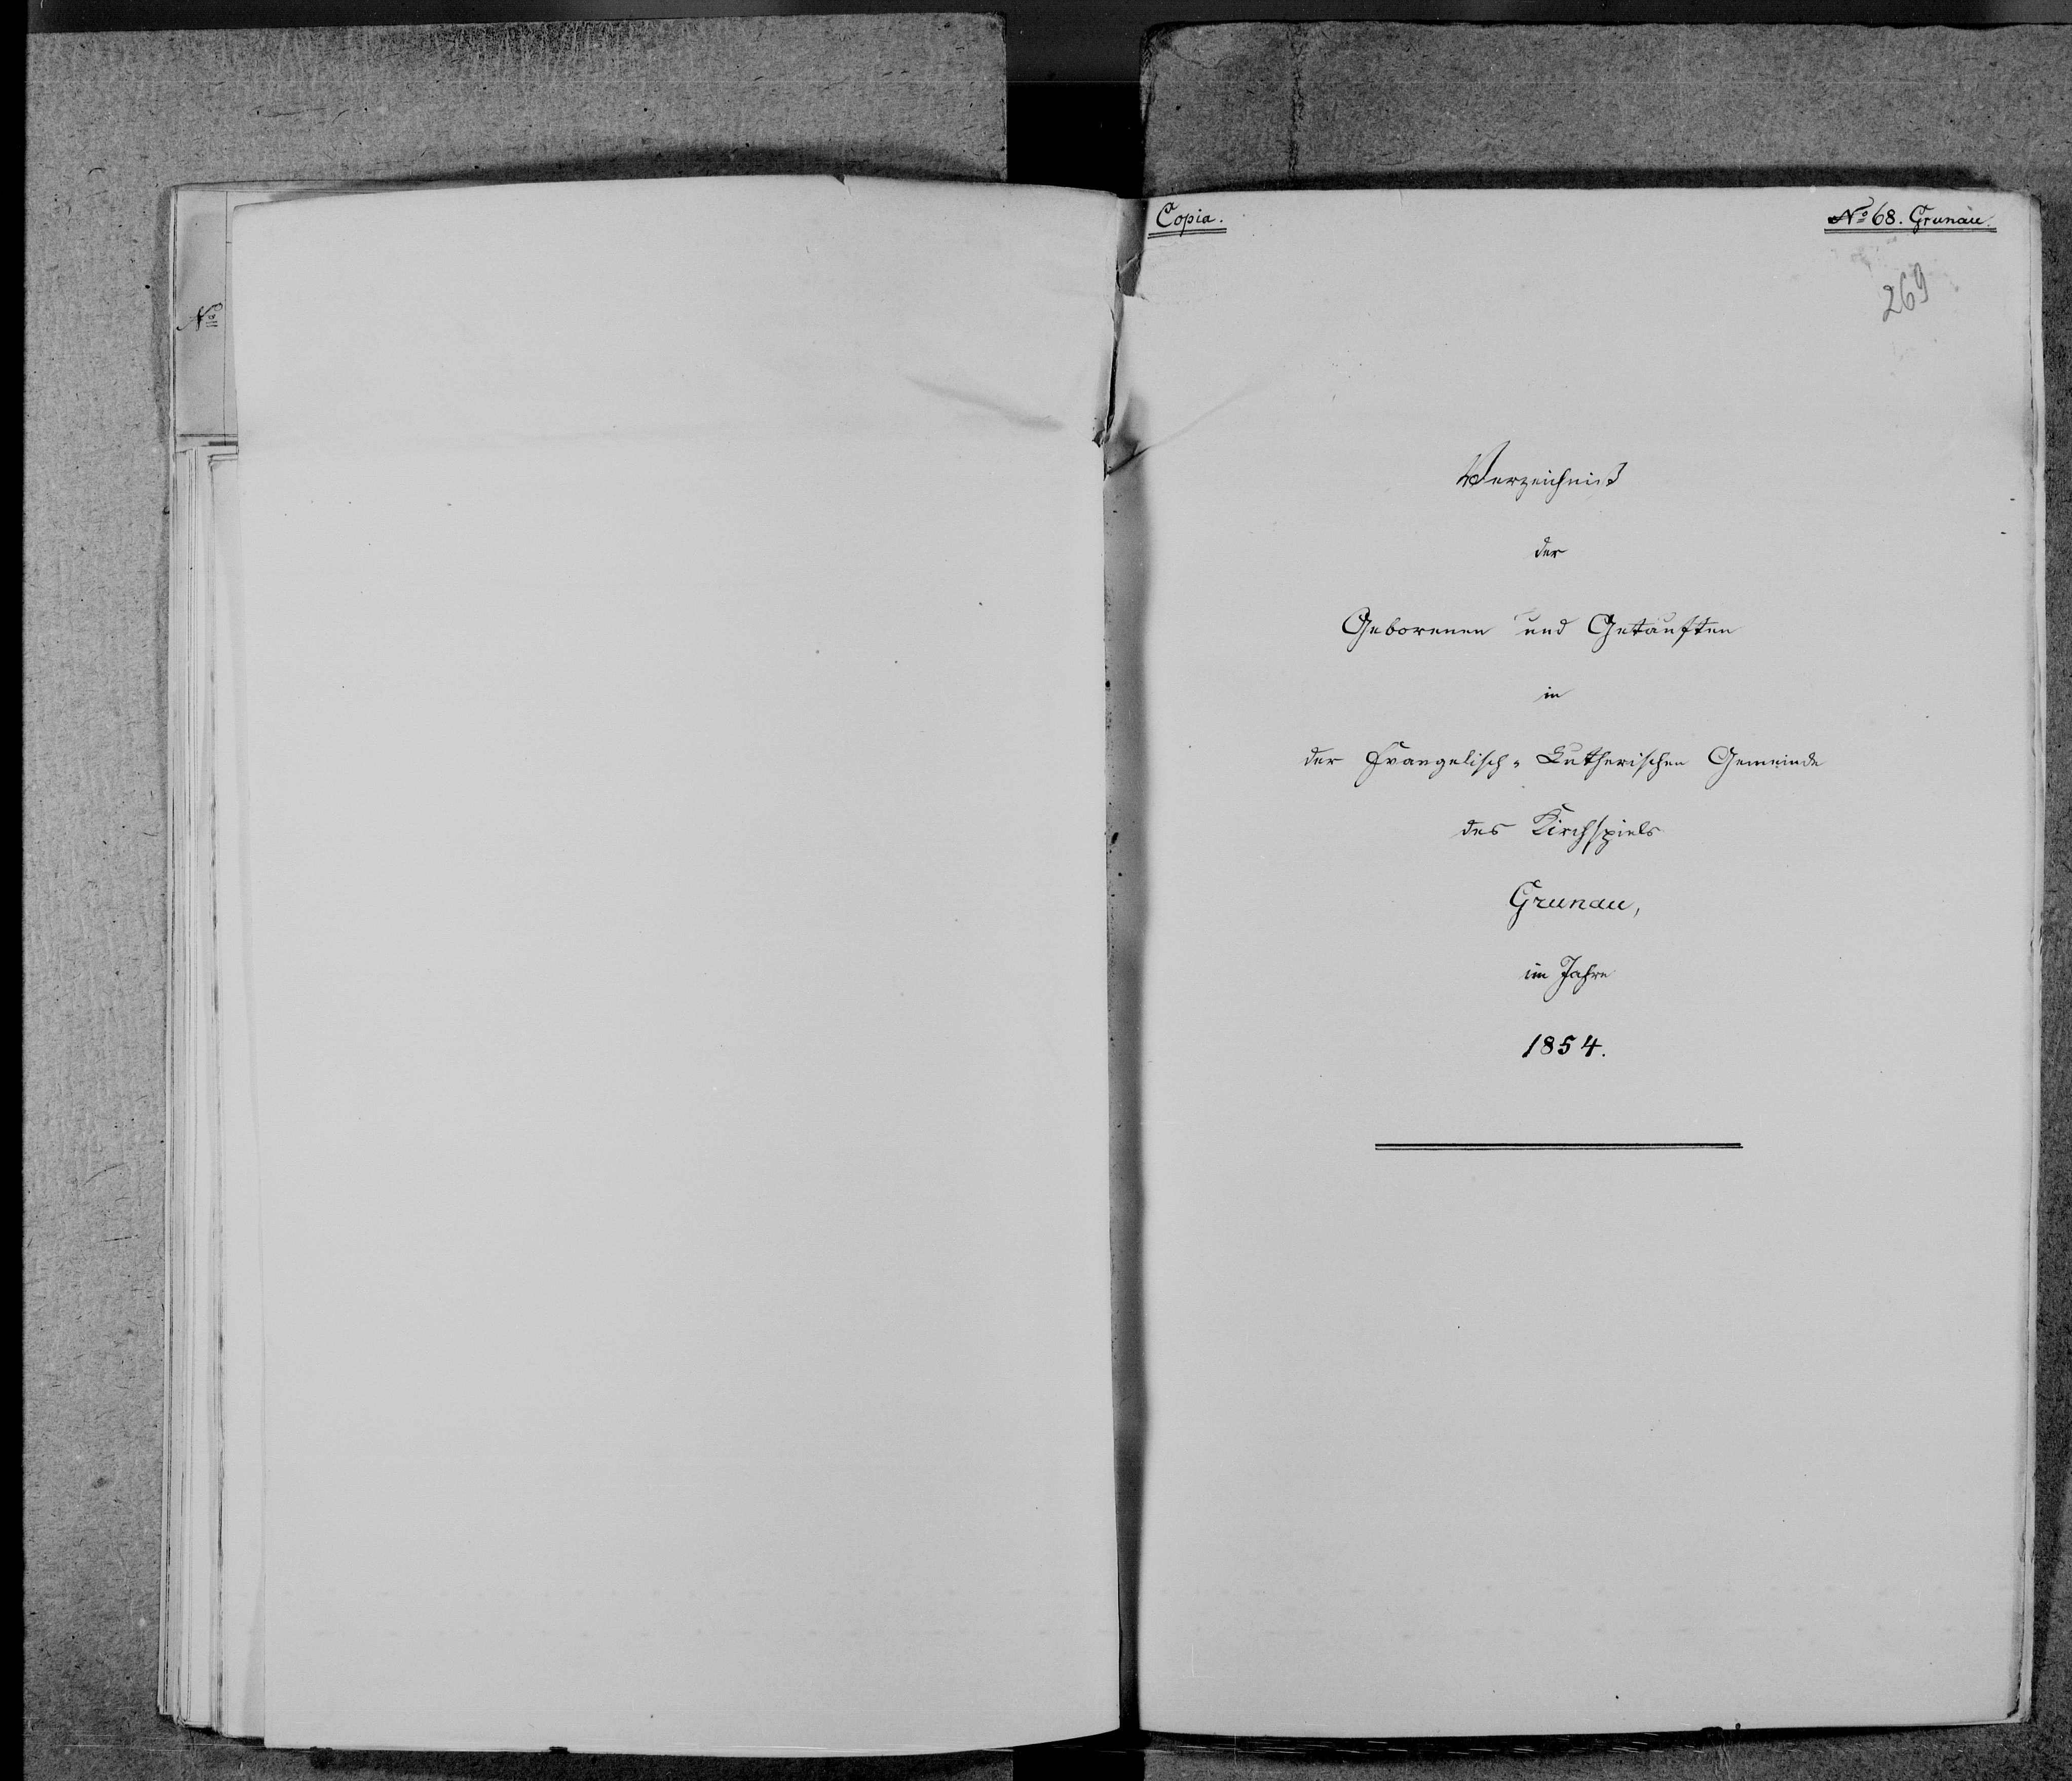 Nº
Copia.
Nº 68. Grunau.
269
Verzeichniß
der
Geborenen und Getauften
in
der Evangelisch-Lutherischen Gemeinde
des Kirchspiels
Grunau,
im Jahre
1854.